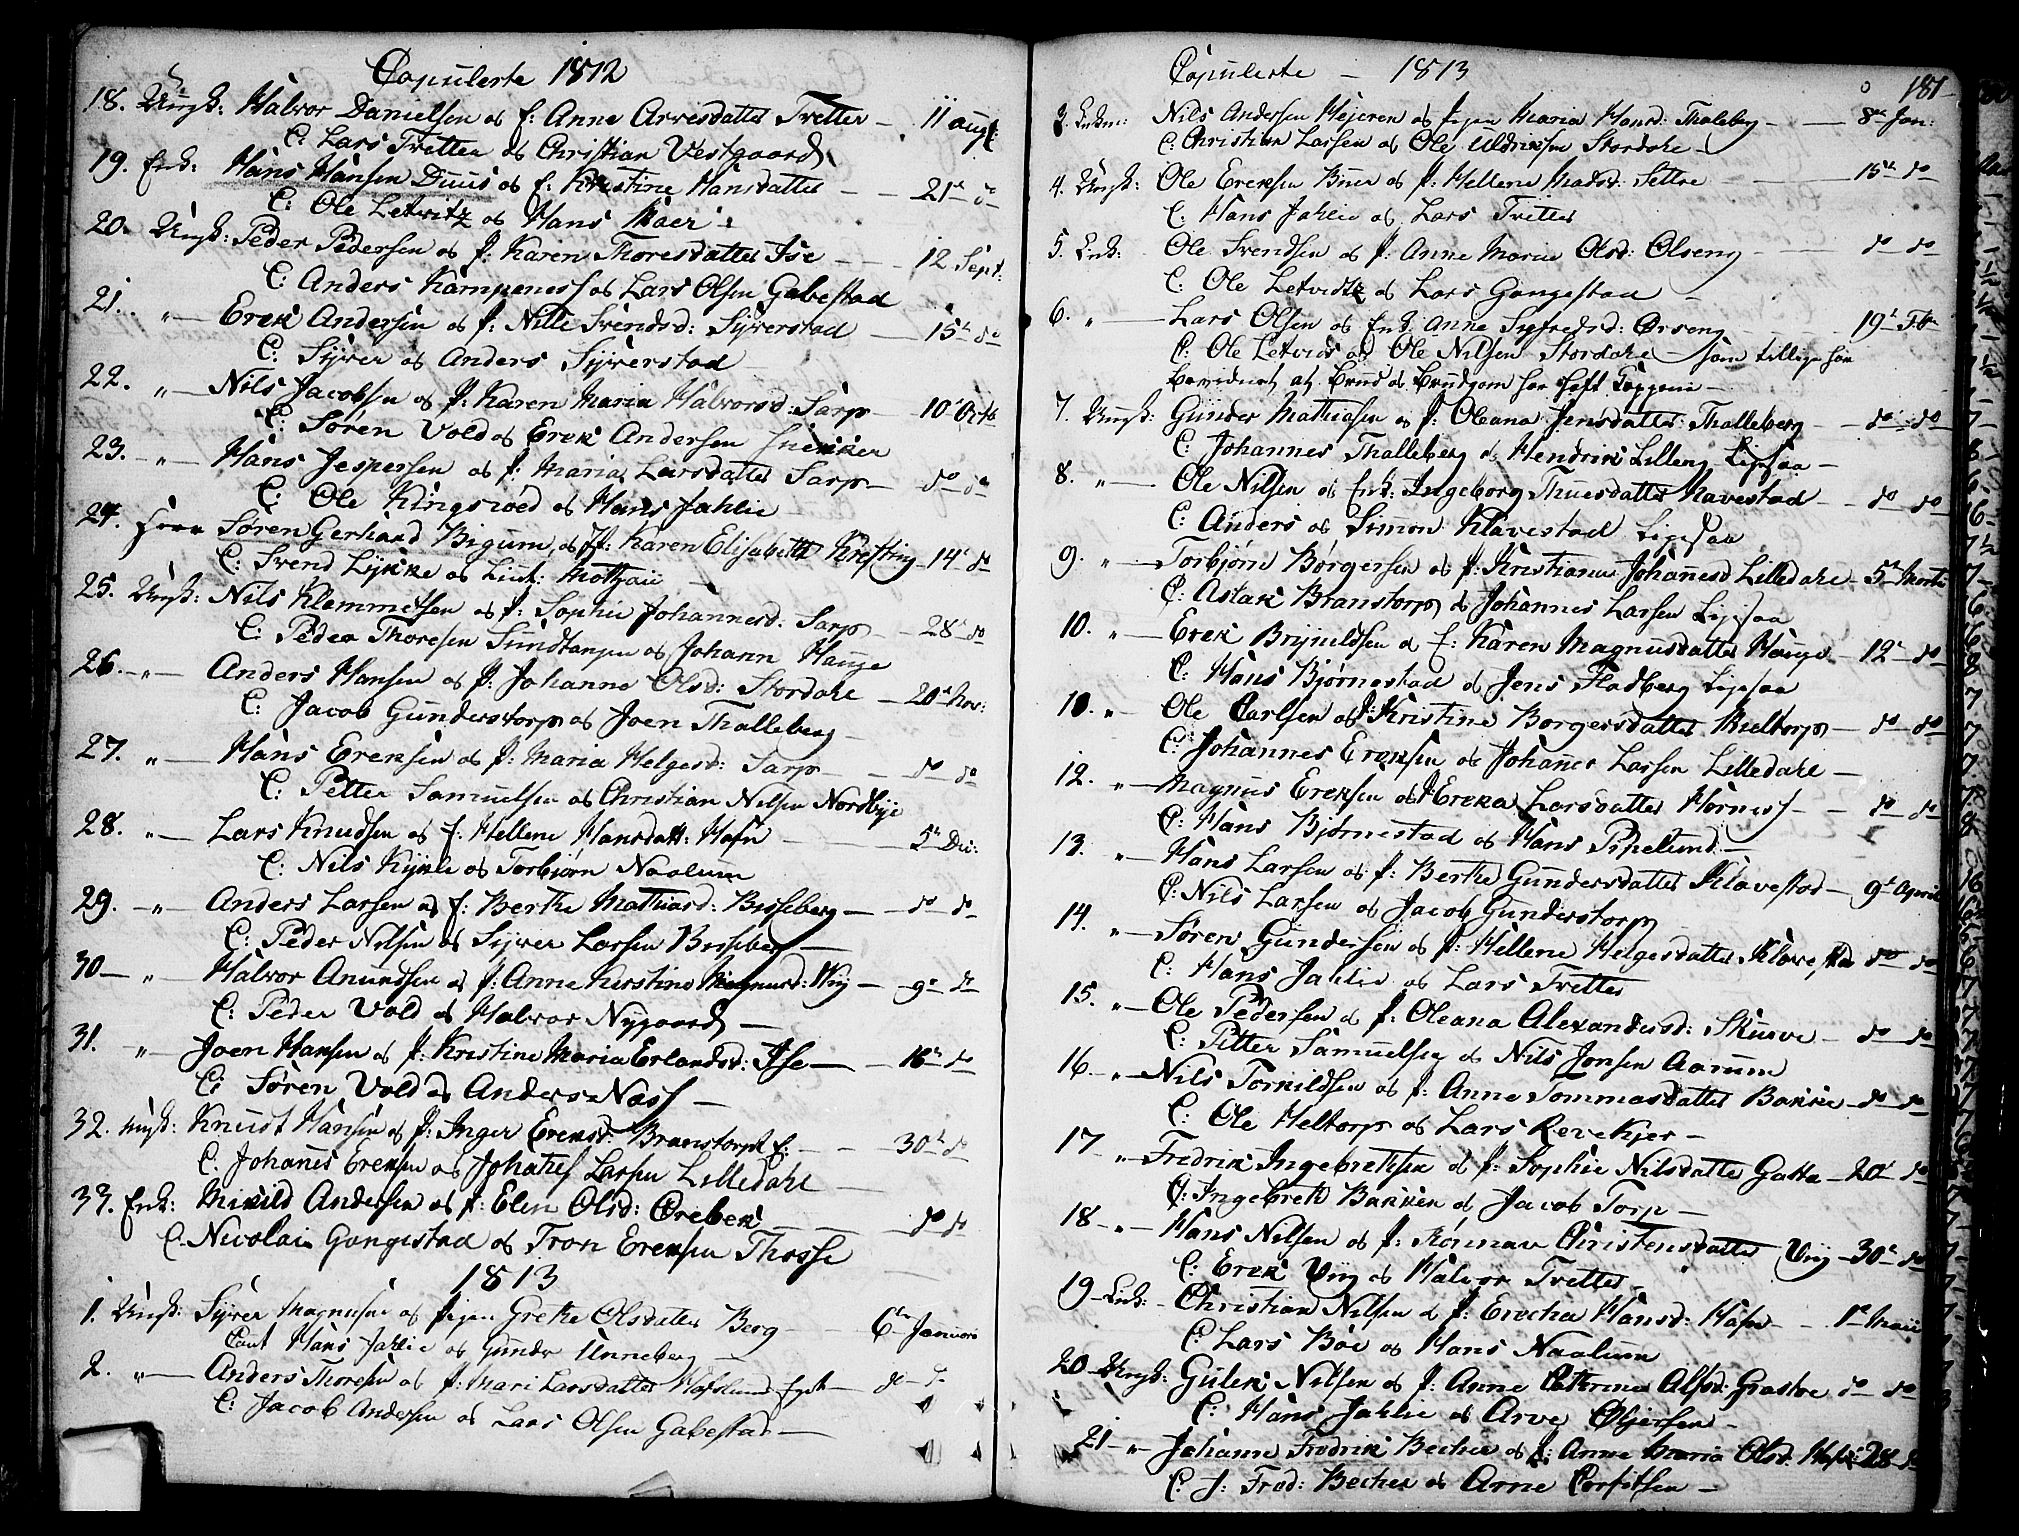 Copulerte 1812
18. Ungk: Halvor Danielsen og P: Anne Arvesdatter Tvetter — 11 augt:
C: Lars Tvetter og Christian Vestgaard
19. Enk: Hans Hansen Duus og P: Kirstine Hansdatter — 21de do
C: Ole Letvitz og Hans Kaer
20. Ungk: Peder Pedersen og P: Karen Thoresdatter Ise — 12 Sept:
C: Anders Kampeness og Lars Olsen Gabestad
21. " — Erek Andersen og P: Nille Svendsd: Syverstad — 15de do
C: Syver og Anders Syverstad
22. " — Nils Jacobsen og P: Karen Maria Halvorsd: Sarp — 10de Octb
C: Søren Vold og Erek Andersen Snekker
23. " — Hans Jespersen og P: Maria Larsdatter Sarp — do do
C: Ole Kingsroed og Hans Jahlie
24. Herr Søren Gerhard Bigum og Jf: Karen Elisabeth Krefting — 14de do
C: Svend Lykke og Lieut: Motzau
25. Ungk: Nils Klemmetsen og P: Sophie Johannesd: Sarp — 28de do
C: Peder Thoresen Sundtangen og Johann Hauge
26. " — Anders Hansen og P: Johanne Olsd: Stordahl — 20de Nov:
C: Jacob Gunderstorp og Joen Thalleberg
27. " — Hans Ereksen og P: Maria Helgesd: Sarp — do do
C: Petter Samuelsen og Christian Nilsen Nordbye
28. " — Lars Knudsen og P: Hellene Hansdatt: Hafn — 5te Dec:
C: Nils Kykle og Torbjørn Naalum
29. " — Anders Larsen og P: Berthe Mathiasd: Bisseberg — do do
C: Peder Nilsen og Syver Larsen Bisseberg
30 — " Halvor Anundsen og P: Anne Kirstine Magnusd: Wiig — 9de do
C: Peder Vold og Halvor Nygaard
31. " Joen Hansen og P: Kristine Maria Erlandsd: Ise — 18de do
C: Søren Vold og Anders Næss
32. Ungk: Knust Hansen og P: Inger Ereksd: Branstorp — 30te do
C: Johanes Ereksen og Johanes Larsen Lilledahl
33. Enk: Mikild Andersen og P: Elen Olsd: Örebek — do do
C: Nicolai Gangestad og Tron Ereksen Thosse
1813
1. Ungk: Syver Magnusen og Pigen Grethe Olsdatter Berg — 6te Januari
Caut Hans Jahlie og Gunder Unneberg
2. " — Anders Thoresen og P: Mari Larsdatter Hafslund — do do
C: Jacob Andersen og Lars Olsen Gabestad
Copulerte — 1813
181
3. Enkm: Nils Andersen Hejeren og Pigen Maria Hansd: Thaleberg — 8de Jan:
C: Christian Larsen og Ole Uldriksen Stordahl
4. Ungk: Ole Ereksen Buer og P: Hellene Madsd: Settre — 15de do
C: Hans Jahlie og Lars Tvetter
5. Enk: Ole Svendsen og P: Anne Marie Olsd: Olseng — do do
C: Ole Letvidtz og Lars Gangestad
6. " — Lars Olsen og Enk: Anne Sygfredsd: Örseng — 19de Feb
C: Ole Letvids og Ole Nilsen Stordahl — som tillige har
bevidnet at Brud og Brudgom har haft Koppene
7. Ungk: Gunder Mathiasen og P: Oleana Jensdatter Thalleberg — do do
C: Johannes Thalleberg og Hendrik Lilleng Ligesaa
8. " — Ole Nilsen og Enk: Ingeborg Thuesdatter Navestad — do do
C: Anders og Simon Klavestad Ligesaa
9. " — Torbjørn Børgersen og P: Kristiane Johanesd Lilledahl — 5te Martii
C: Aslak Branstorp og Johannes Larsen Ligesaa
10. " — Erek Brynildsen og P: Karen Magnusdatter Hauge — 12te do
C: Hans Bjørnestad og Jens Fladberg Ligesaa
10. " — Ole Carlsen og P: Kristine Borgersdatter Bieltorp — do do
C: Johannes Ereksen og Johanes Larsen Lilledahl
12. " — Magnus Ereksen og P: Ereka Larsdatter Hornes — do do
C: Hans Bjørnestad og Hans Pipelund
13. " — Hans Larsen og P: Berthe Gundersdatter Klavestad — 9de April
C: Nils Larsen og Jacob Gunderstorp
14. " — Søren Gundersen og P: Hellene Helgesdatter Klavestad do do
C: Hans Jahlie og Lars Tvetter
15. " — Ole Pedersen og P: Oleana Alexandersd: Skurve — do do
C: Petter Samuelsen og Nils Jonsen Aarum
16. " — Nils Torkildsen og P: Anne Tommasdatter Bakke — do do
C: Ole Heltorp og Lars Revekjer
17 " — Fredrik Ingebretsen og P: Sophie Nilsdatter Gatta — 20de do
C: Ingebret Bakken og Jacob Torp
18 — " — Hans Nilsen og P: Rønnav Christensdatter Viig — 30te do
C: Erek Viig og Halvor Tvetter
19 — Enk: Christian Nilsen og P: Erecha Hansd: Hafn — 1te Maii
C: Lars Böe og Hans Naalum
20 — Ungk: Gulek Nilsen og P: Anne Cathrine Alfsd: Grastve do do
C: Hans Jahlie og Arve
21 — " — Johann Fredrik Becher og P: Anne Maria Olsd: Hafn 28 do
C: J: Fred: Becher og Arne Corfitsen